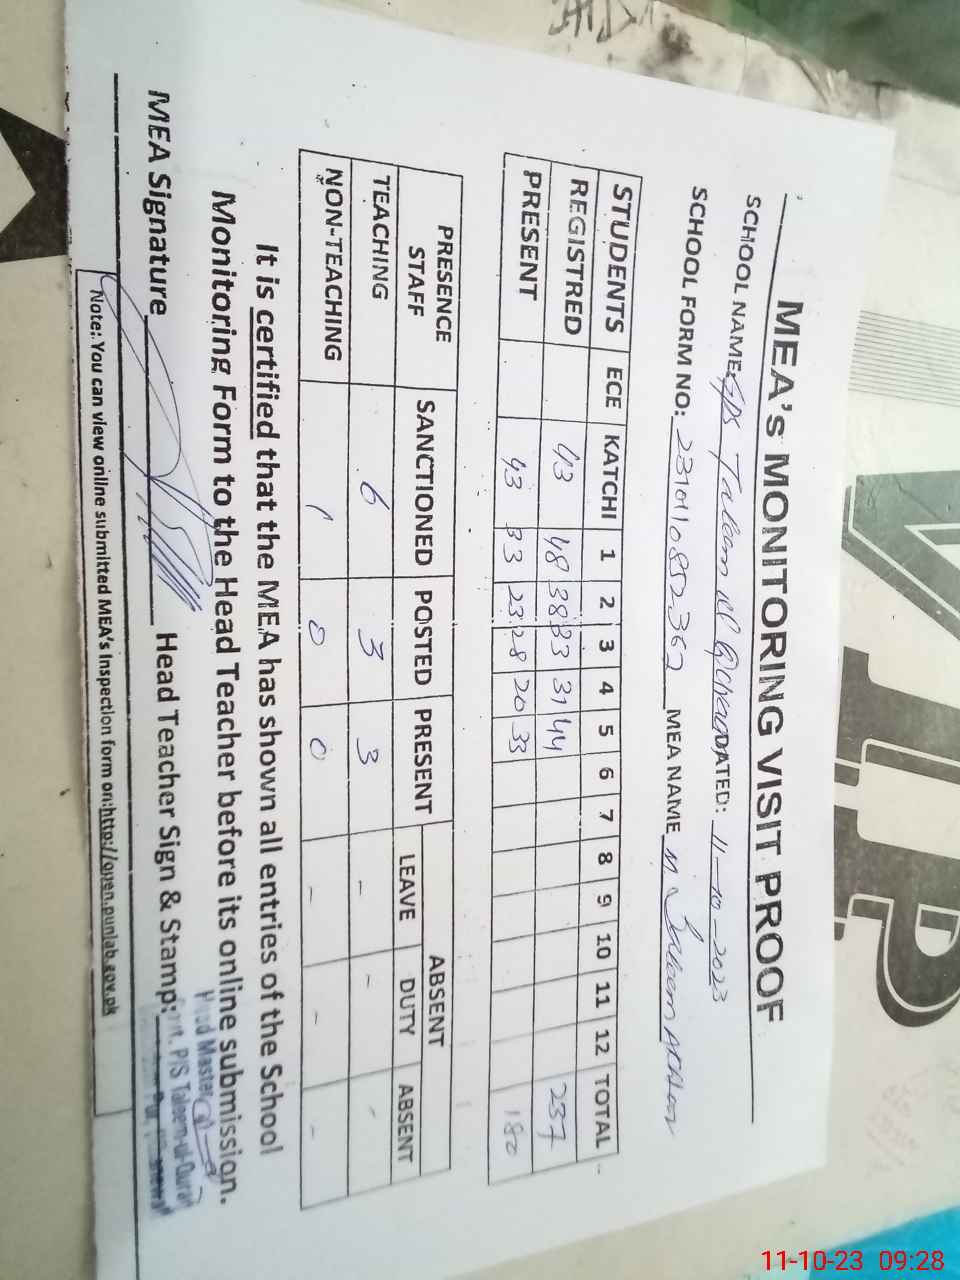 MEA's MONITORING VISIT PROOF
SCHOOL NAME: GPS Taleem ul Quran DATED: 11-10-2023
SCHOOL FORM NO: MEA NAME M Saleem
STUDENTS ECE KATCHI 1 2 3 4 5 6 7 8 9 10 11 12 TOTAL
REGISTRED 43 48 38 33 31 44 237
PRESENT 43 33 23 28 20 33 180
PRESENCE STAFF SANCTIONED POSTED PRESENT ABSENT
LEAVE DUTY ABSENT
TEACHING 6 3 3 - - -
NON-TEACHING 1 0 0 - - -
It is certified that the MEA has shown all entries of the School
Monitoring Form to the Head Teacher before its online submission.
MEA Signature Head Teacher Sign & Stamp:
Head Master
P/S Taleem-ul-Quran
Note: You can view online submitted MEA's Inspection form on:http://open.punjab.gov.pk
VIP
11-10-23 09:28